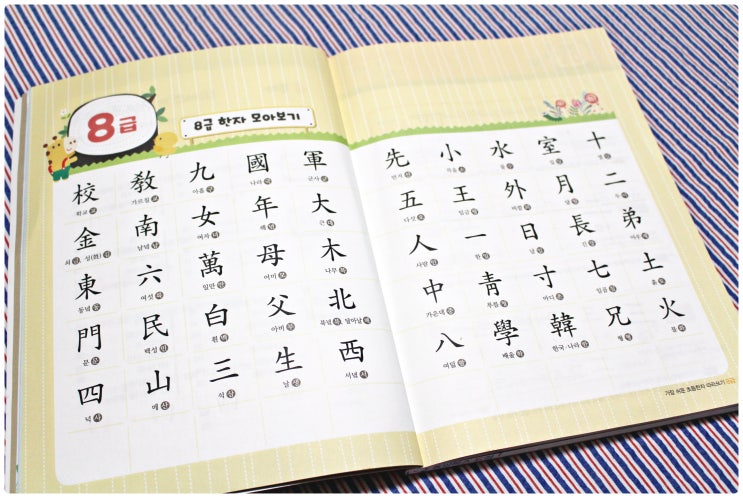 8급
8급 한자 모아보기
校 敎 九 國 軍
학교 교 가르칠 교 아홉 구 나라 국 군사 군
金 南 女 年 大
쇠 금, 성(姓) 김 남녘 남 여자 녀 해 년 큰 대
東 六 萬 母 木
동녘 동 여섯 륙 일만 만 어미 모 나무 목
門 民 白 父 北
문 문 백성 민 흰 백 아비 부 북녘 북, 달아날 배
四 山 三 生 西
넉 사 메 산 석 삼 날 생 서녘 서
先 小 水 室 十
먼저 선 작을 소 물 수 집 실 열 십
五 王 外 月 二
다섯 오 임금 왕 바깥 외 달 월 두 이
人 一 日 長 弟
사람 인 한 일 날 일 긴 장 아우 제
中 靑 寸 七 土
가운데 중 푸를 청 마디 촌 일곱 칠 흙 토
八 學 韓 兄 火
여덟 팔 배울 학 한국·나라 한 형 형 불 화
가장 쉬운 초등한자 따라쓰기 8급